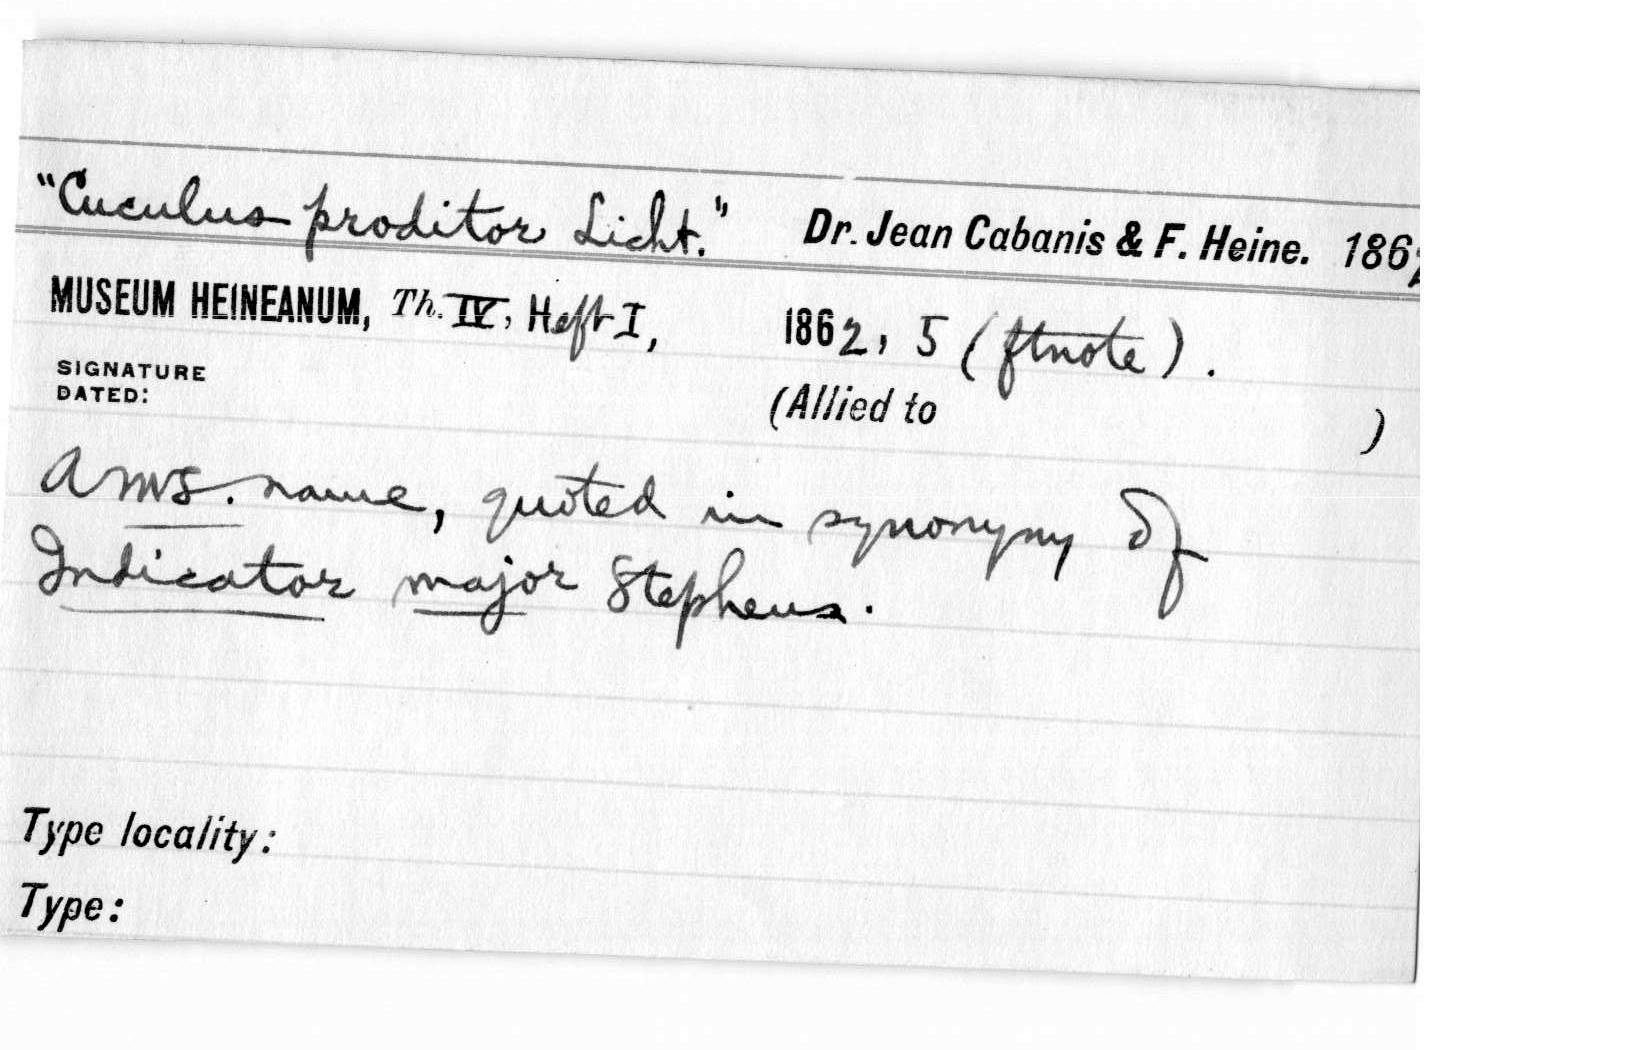 "Cuculus proditor Licht." Dr. Jean Cabanis & F. Heine. 1862
MUSEUM HEINEANUM, Th. IV, Heft I, 1862, 5 (ftnote).
SIGNATURE
DATED:
(Allied to )
A MS. name, quoted in synonymy of
Indicator major Stephens.
Type locality:
Type: